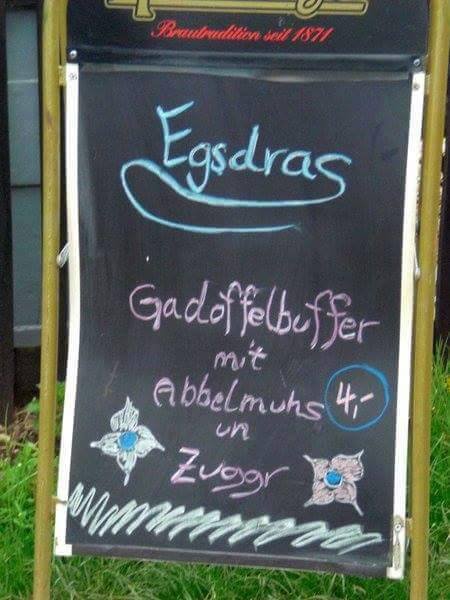 Brautradition seit 1871
Egsdras
Gadoffelbuffer
mit
Abbelmuhs 4,-
un
Zuggr